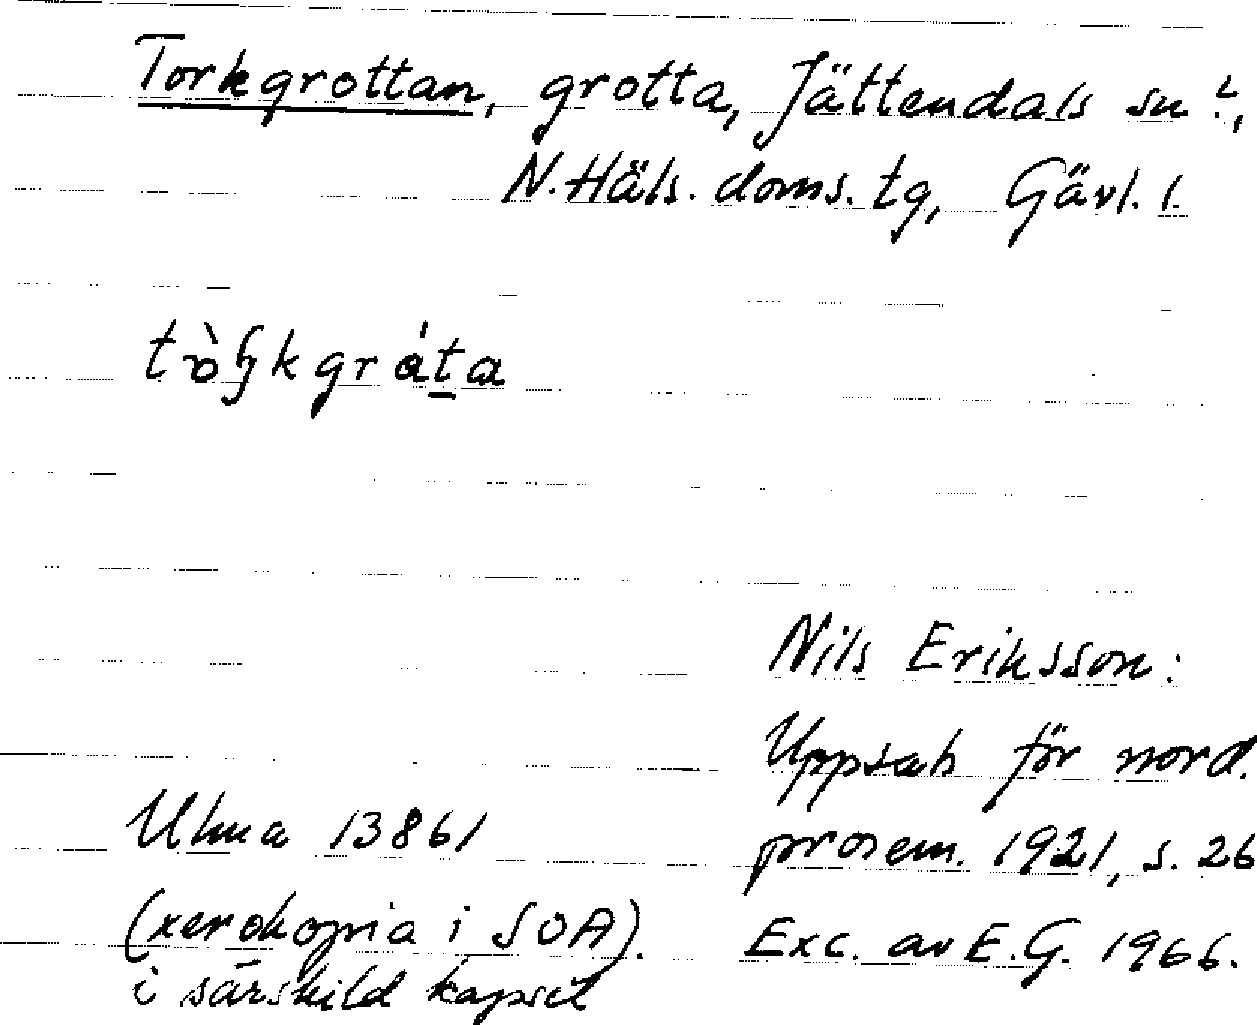 Torkgrottan, grotta, Jättendals sn?,
N. Häls. doms. tg, Gävl. l.
Nils Eriksson:
Uppsats för nord.
Ulma 13861 prosem. 1921, s. 26
(xerokopia i SOA). Exc. av E.G. 1966.
i särskild kapsel